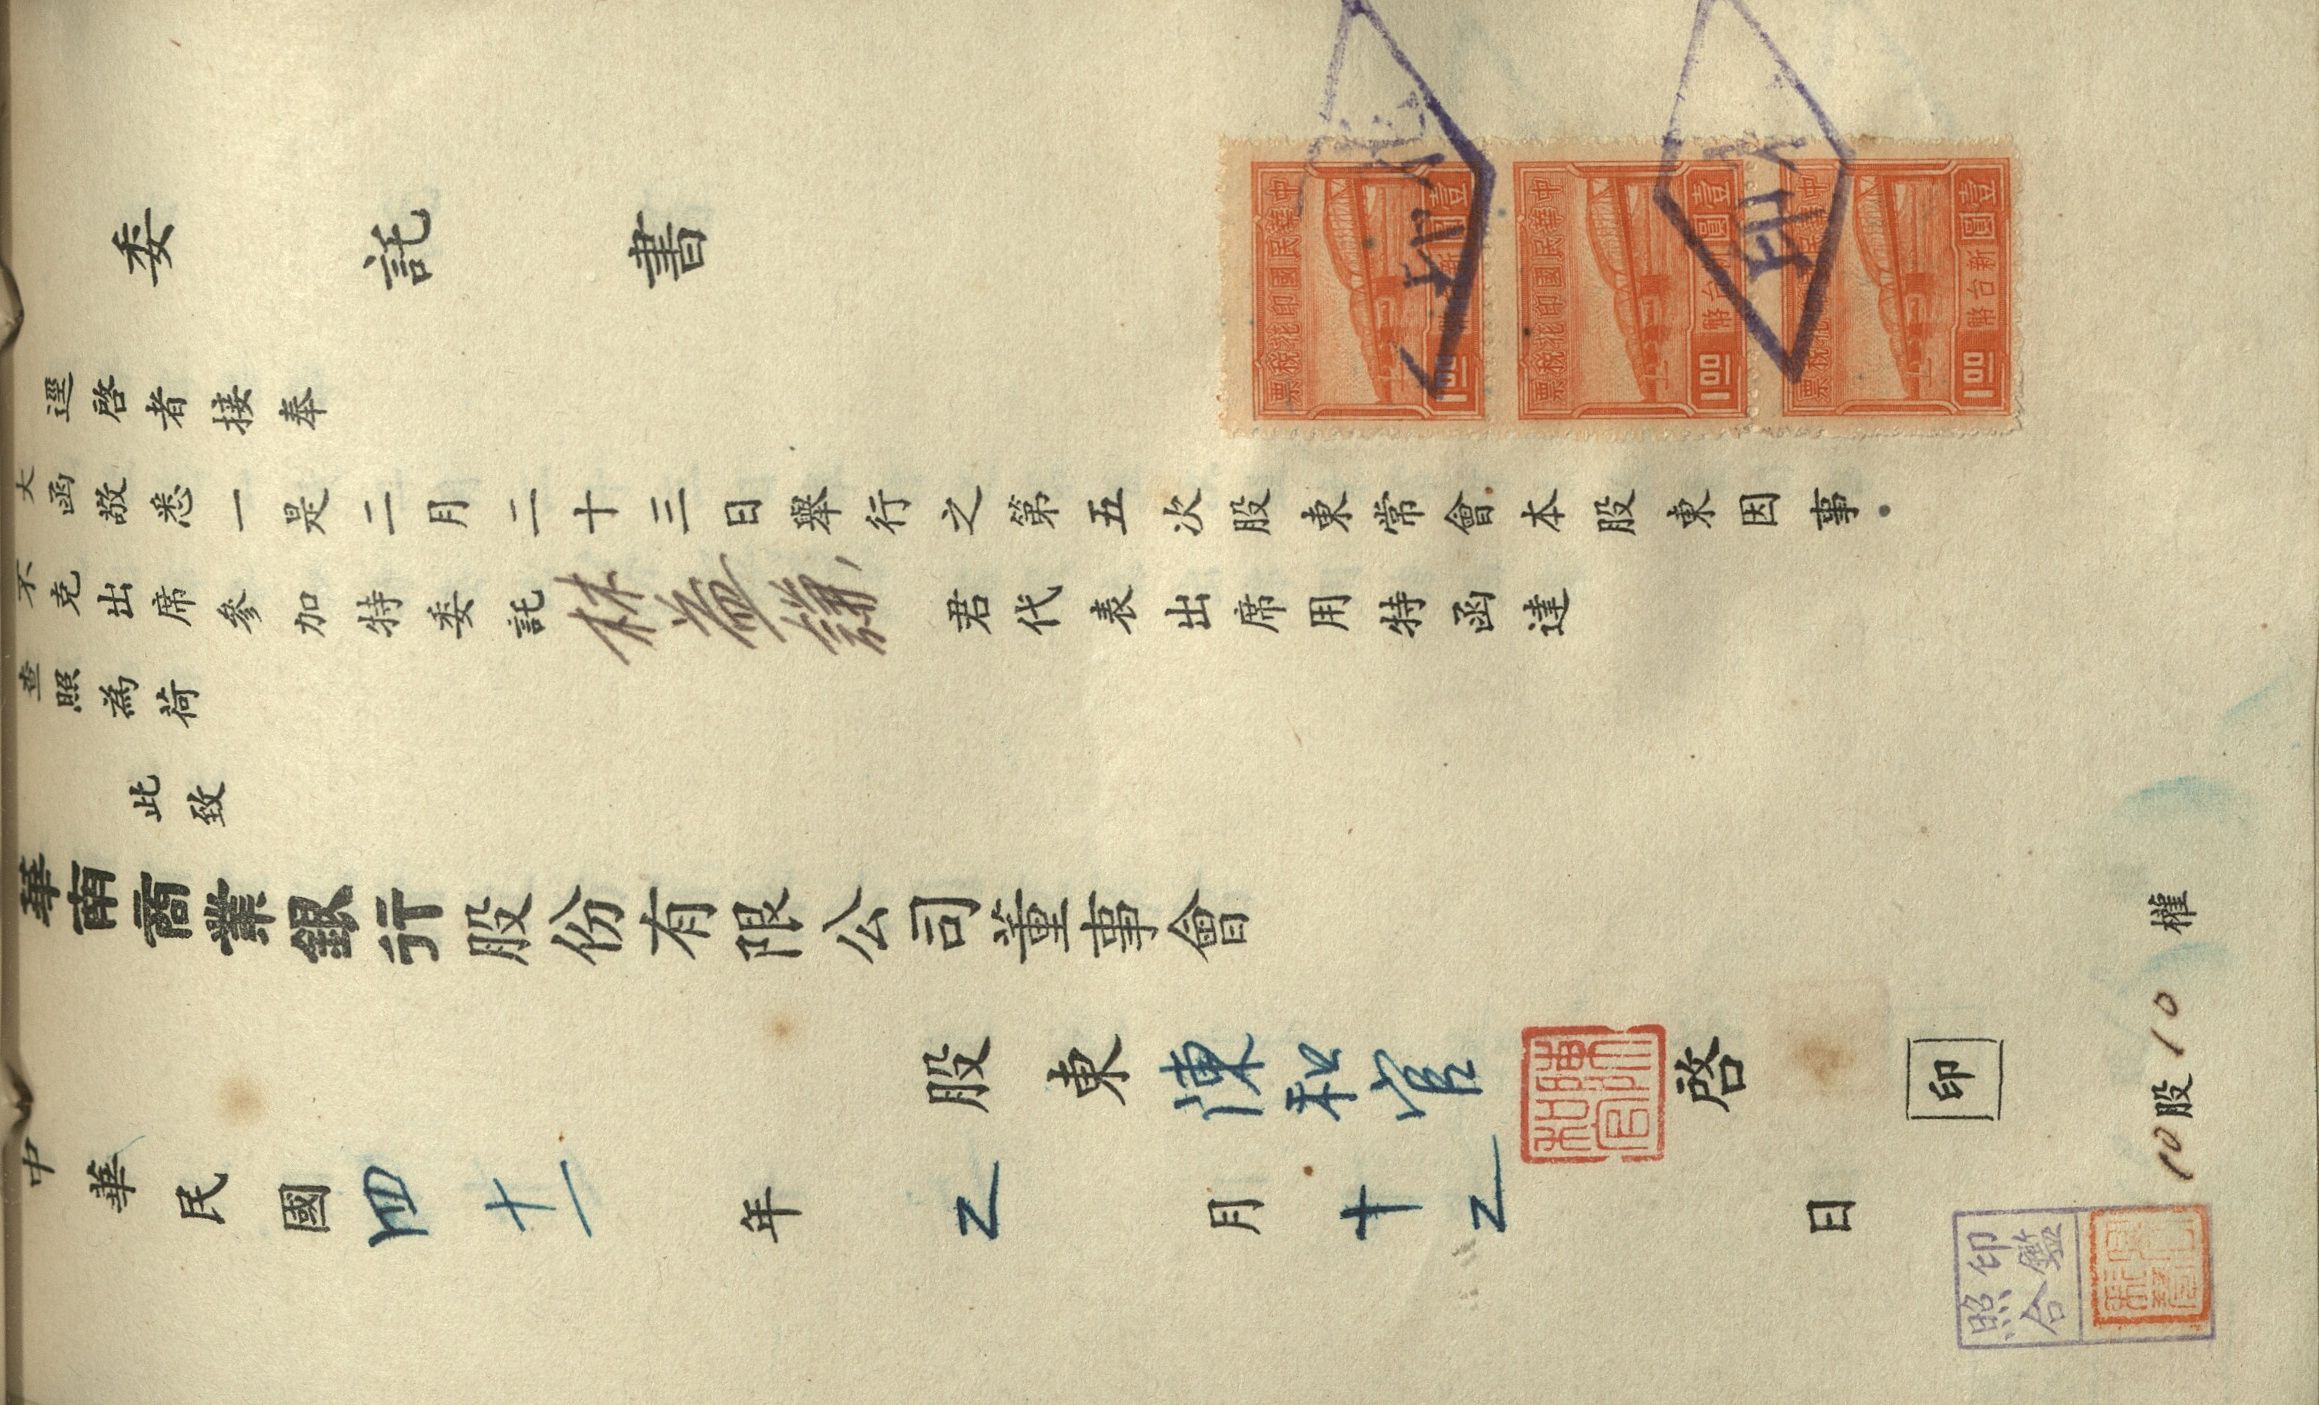 委託書
逕啓者接奉
大函敬悉一是二月二十三日舉行之第五次股東常會本股東因事
不克出席參加特委託林益謙君代表出席用特函達
查照為荷
此致
華南商業銀行股份有限公司董事會
股東陳和官啓
印
中華民國四十一年乙月十乙日
10股10權
中華民國印花稅票
壹圓
新台幣
1.00
中華民國印花稅票
壹圓
新台幣
1.00
中華民國印花稅票
壹圓
新台幣
1.00
印鑑
照合